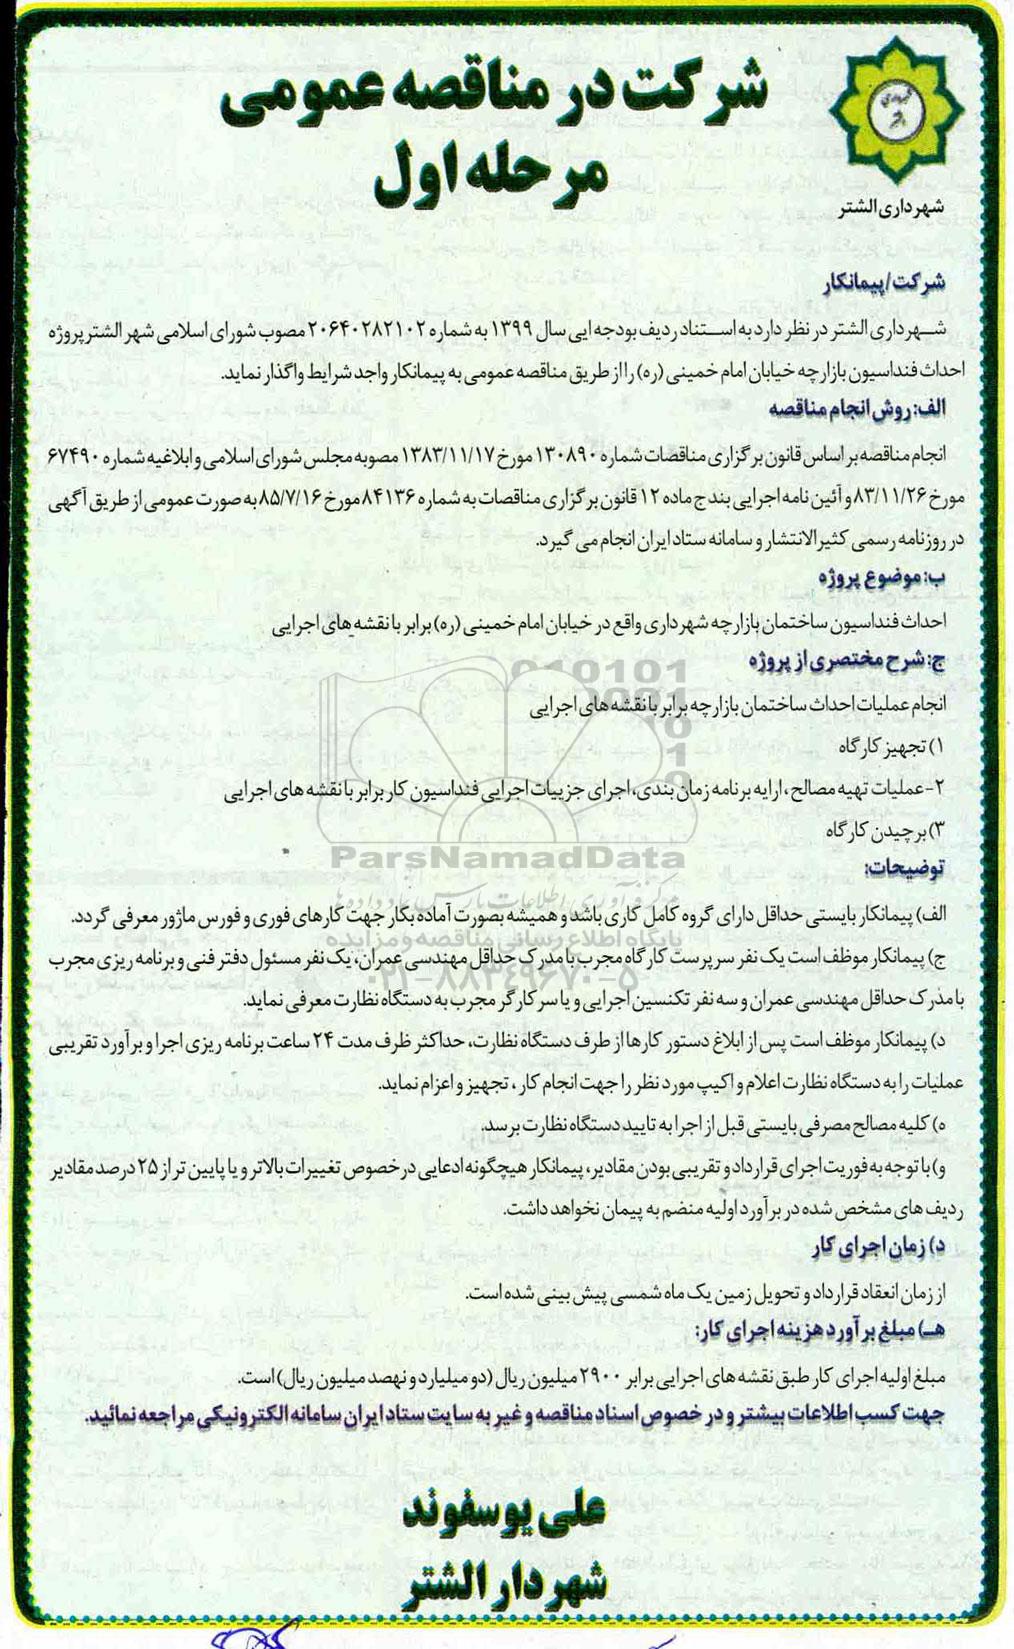 شرکت در مناقصه عمومی
مرحله اول
شهرداری الشتر
شرکت/پیمانکار
شهرداری الشتر در نظر دارد به استناد ردیف بودجه ایی سال ۱۳۹۹ به شماره ۲۰۶۴۰۲۸۲۱۰۲ مصوب شورای اسلامی شهر الشتر پروژه
احداث فنداسیون بازارچه خیابان امام خمینی (ره) را از طریق مناقصه عمومی به پیمانکار واجد شرایط واگذار نماید.
الف: روش انجام مناقصه
انجام مناقصه بر اساس قانون برگزاری مناقصات شماره ۱۳۰۸۹۰ مورخ ۱۳۸۳/۱۱/۱۷ مصوبه مجلس شورای اسلامی و ابلاغیه شماره ۶۷۴۹۰
مورخ ۸۳/۱۱/۲۶ و آئین نامه اجرایی بند ج ماده ۱۲ قانون برگزاری مناقصات به شماره ۸۴۱۳۶ مورخ ۸۵/۷/۱۶ به صورت عمومی از طریق آگهی
در روزنامه رسمی کثیرالانتشار و سامانه ستاد ایران انجام می گیرد.
ب: موضوع پروژه
احداث فنداسیون ساختمان بازارچه شهرداری واقع در خیابان امام خمینی (ره) برابر با نقشه های اجرایی
ج: شرح مختصری از پروژه
انجام عملیات احداث ساختمان بازارچه برابر با نقشه های اجرایی
۱) تجهیز کارگاه
۲- عملیات تهیه مصالح، ارایه برنامه زمان بندی، اجرای جزییات اجرایی فنداسیون کار برابر با نقشه های اجرایی
۳) برچیدن کارگاه
ParsNamadData
توضیحات:
الف) پیمانکار بایستی حداقل دارای گروه کامل کاری باشد و همیشه بصورت آماده بکار جهت کارهای فوری و فورس ماژور معرفی گردد.
پایگاه اطلاع رسانی مناقصه و مزایده
ج) پیمانکار موظف است یک نفر سرپرست کارگاه مجرب با مدرک حداقل مهندسی عمران، یک نفر مسئول دفتر فنی و برنامه ریزی مجرب
۰۲۱-۸۸۳۴۹۶۷۰-۵
با مدرک حداقل مهندسی عمران و سه نفر تکنسین اجرایی و یا سر کارگر مجرب به دستگاه نظارت معرفی نماید.
د) پیمانکار موظف است پس از ابلاغ دستور کارها از طرف دستگاه نظارت، حداکثر ظرف مدت ۲۴ ساعت برنامه ریزی اجرا و برآورد تقریبی
عملیات را به دستگاه نظارت اعلام و اکیپ مورد نظر را جهت انجام کار، تجهیز و اعزام نماید.
ه) کلیه مصالح مصرفی بایستی قبل از اجرا به تایید دستگاه نظارت برسد.
و) با توجه به فوریت اجرای قرارداد و تقریبی بودن مقادیر، پیمانکار هیچگونه ادعایی در خصوص تغییرات بالاتر و یا پایین تر از ۲۵ درصد مقادیر
ردیف های مشخص شده در برآورد اولیه منضم به پیمان نخواهد داشت.
د) زمان اجرای کار
از زمان انعقاد قرارداد و تحویل زمین یک ماه شمسی پیش بینی شده است.
هـ) مبلغ برآورد هزینه اجرای کار:
مبلغ اولیه اجرای کار طبق نقشه های اجرایی برابر ۲۹۰۰ میلیون ریال (دو میلیارد و نهصد میلیون ریال) است.
جهت کسب اطلاعات بیشتر و در خصوص اسناد مناقصه و غیر به سایت ستاد ایران سامانه الکترونیکی مراجعه نمائید.
علی یوسفوند
شهردار الشتر